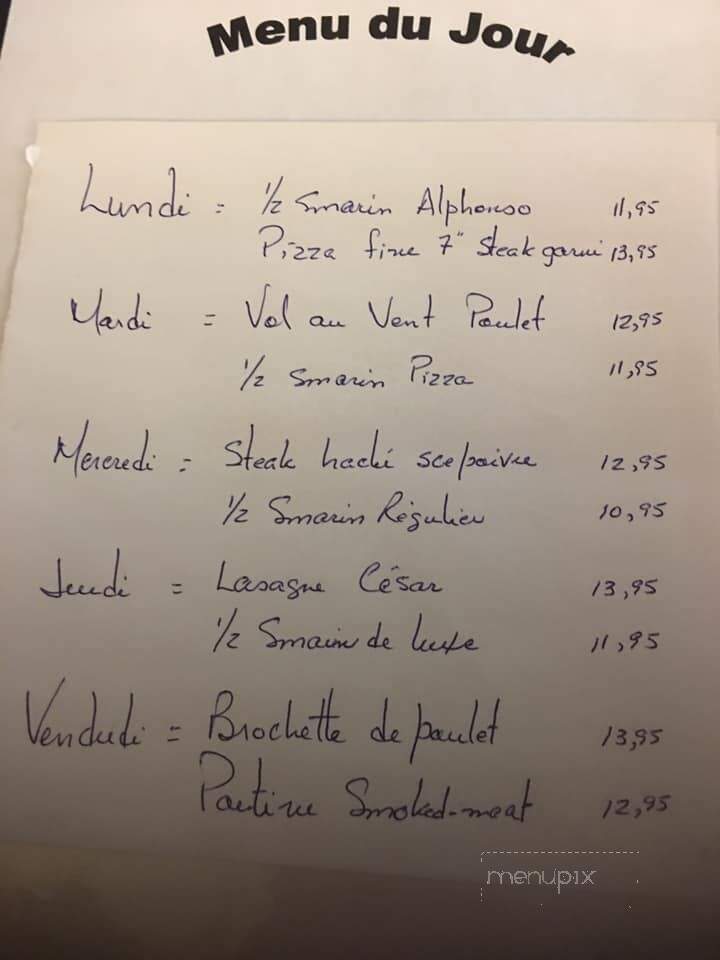 Menu du Jour
Lundi = 1/2 Smarin Alphonso 11,95
Pizza fine 7" Steak garni 13,95
Mardi = Vol au Vent Poulet 12,95
1/2 Smarin Pizza 11,95
Mercredi = Steak haché sce poivre 12,95
1/2 Smarin Régulier 10,95
Jeudi = Lasagne César 13,95
1/2 Smarin de luxe 11,95
Vendredi = Brochette de poulet 13,95
Poutine Smoked-meat 12,95
menupix